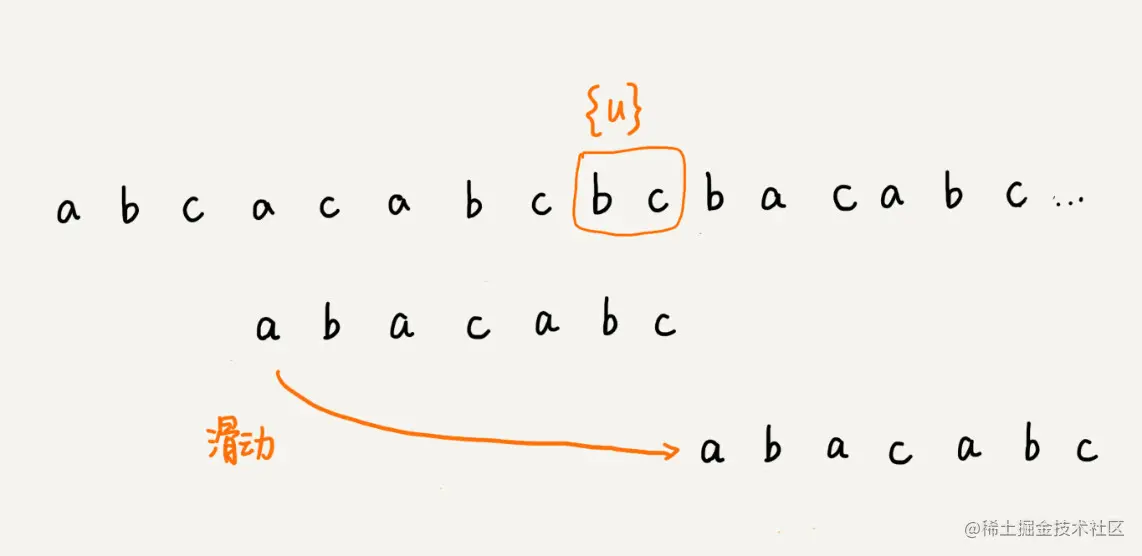 {u}
a b c a c a b c b c b a c a b c ...
a b a c a b c
滑动
a b a c a b c
@稀土掘金技术社区